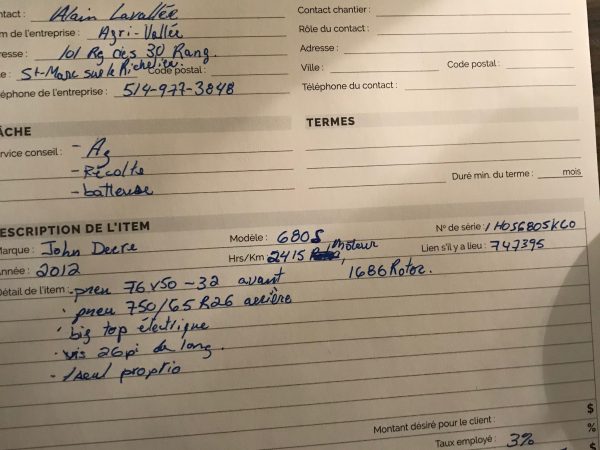 ntact : Alain Lavallée
Contact chantier :
m de l'entreprise : Agri-Vallée
Rôle du contact :
resse : 101 Rg des 30 Rang.
Adresse :
e : St-Marc sur le Richelieu. Code postal :
Ville : Code postal :
léphone de l'entreprise : 514-977-3848
Téléphone du contact :
ÂCHE
TERMES
ervice conseil : - Ag
- Récolte
- batteuse
Duré min. du terme : mois
ESCRIPTION DE L'ITEM
Marque : John Deere Modèle : 680S N° de série : 1H0S680SKC0
Année : 2012 Hrs/Km 2415 moteur, Lien s'il y a lieu : 747395
1686 Rotor.
Détail de l'item : - pneu 76x50-32 avant
- pneu 750/65R26 arrière
- big top électrique
- vis 26pi de long.
- 1 seul proprio
Montant désiré pour le client : $
Taux employé : 3% %
$